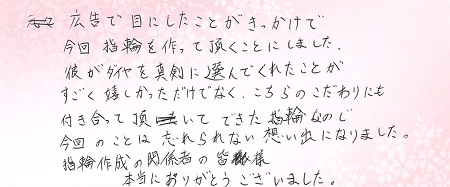 広告で目にしたことがきっかけで
今回指輪を作って頂くことにしました。
彼がダイヤを真剣に選んでくれたことが
すごく嬉しかっただけでなく、こちらのこだわりにも
付き合って頂いてできた指輪なので
今回のことは忘れられない想い出になりました。
指輪作成の関係者の皆様
本当にありがとうございました。